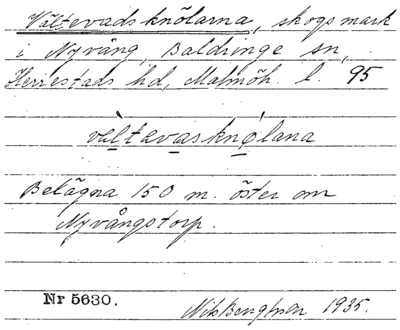 Vältevadsknölarna, skogsmark
i Nyvång, Baldringe sn,
Herrestads hd, Malmöh. l. 95
vältavasknølana
Belägna 150 m. öster om
Nyvångstorp.
Nr 5630.
Nils Bengtson 1935.